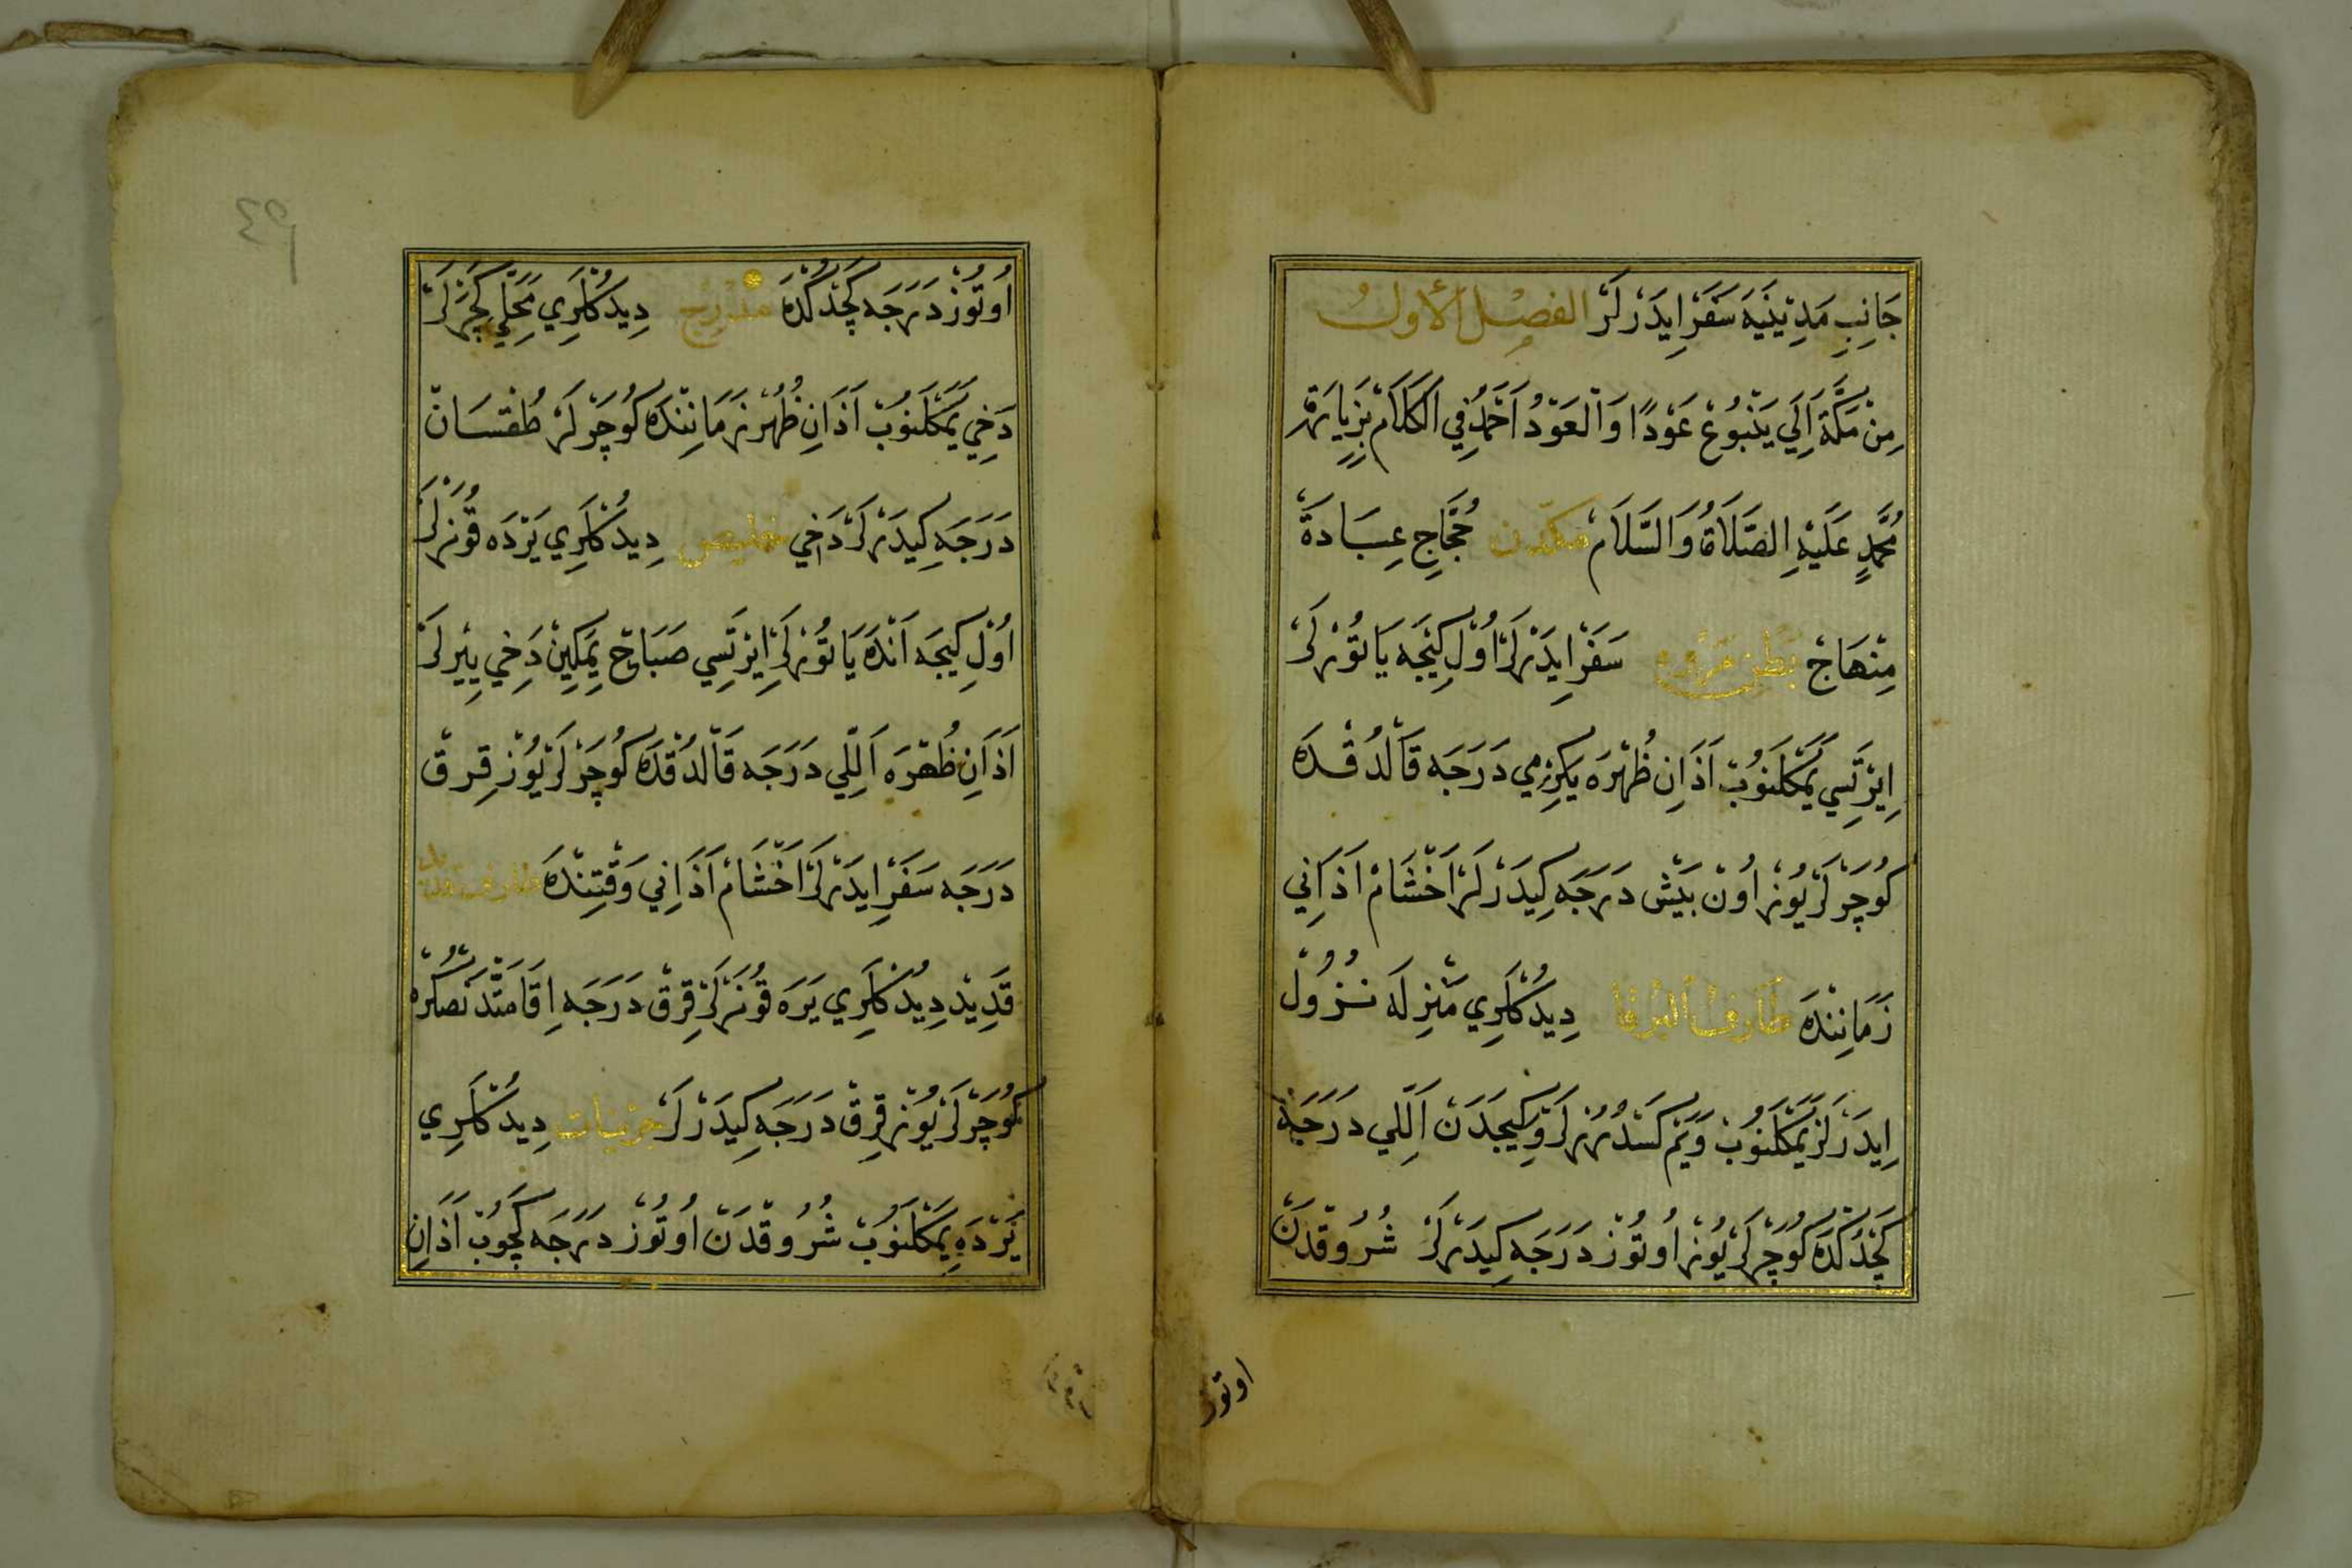 جَانِبِ مَدِينَيَه سَفَرْ اِيدَرْلَرْ الفصل الأول
مِنْ مَكَّةَ اِلَي يَنْبُوعْ عَوْدًا وَالْعَوْدُ اَحْمَدُ فِي الْكَلَامْ بِزِيَارَةْ
مُحَمَّدٍ عَلَيْهِ الصَّلَاةُ وَالسَّلَامْ مكّه‌دن حُجَّاجِ عِبَادَةْ
مِنْهَاجْ بَطْنِ مَرْوه سَفَرْ اِيدَرْلَرْ اُوْلْ كِيجَه يَاتُوْرْلَرْ
اِيرْتَسِي يَمَكْلَنُوبْ اَذَانِ ظُهْرَه يِكِرْمِي دَرَجَه قَالْدُقْدَه
كُوچَرْلَرْ يُوزْ اُونْ بَيْشْ دَرَجَه كِيدَرْلَرْ اَخْشَامْ اَذَانِي
زَمَانِنْدَه طَارِفُ الْبُرقا دِيدُكْلَرِي مَنْزِلَه نُزُولْ
اِيدَرْلَرْ يَمَكْلَنُوبْ وَيَمْ كَسْدُرُرْلَرْ وَكِيجَدَنْ اَللِّي دَرَجَه
كَچْدُكْدَه كُوچَرْلَرْ يُوزْ اُوتُوزْ دَرَجَه كِيدَرْلَرْ شُرُوقْدَنْ
اوتوز
٤٩
اُوتُوزْ دَرَجَه كَچْدُكْدَه مدرج دِيدُكْلَرِي مَحَلِّي كَچَرْلَرْ
دَخِي يَمَكْلَنُوبْ اَذَانِ ظُهْرْ زَمَانِنْدَه كُوچَرْلَرْ طُقْسَانْ
دَرَجَه كِيدَرْلَرْ دَخِي خليص دِيدُكْلَرِي يَرْدَه قُونَرْلَرْ
اُولْ كِيجَه اَنْدَه يَاتُورْلَرْ اِيرْتَسِي صَبَاحْ يَمَكِينْ دَخِي يِيرْلَرْ
اَذَانِ ظُهْرَه اَللِّي دَرَجَه قَالْدُقْدَه كُوچَرْلَرْ يُوزْ قِرقْ
دَرَجَه سَفَرْ اِيدَرْلَرْ اَخْشَامْ اَذَانِي وَقْتِنْدَه طارف
قَدِيدْ دِيدُكْلَرِي يَرَه قُونَرْلَرْ قِرقْ دَرَجَه اِقَامَتْدَنْ صُكْرَه
كُوچَرْلَرْ يُوزْ قِرقْ دَرَجَه كِيدَرْلَرْ جرينات دِيدُكْلَرِي
يَرْدَه يَمَكْلَنُوبْ شُرُوقْدَنْ اُوتُوزْ دَرَجَه كَچُوبْ اَذَانِ